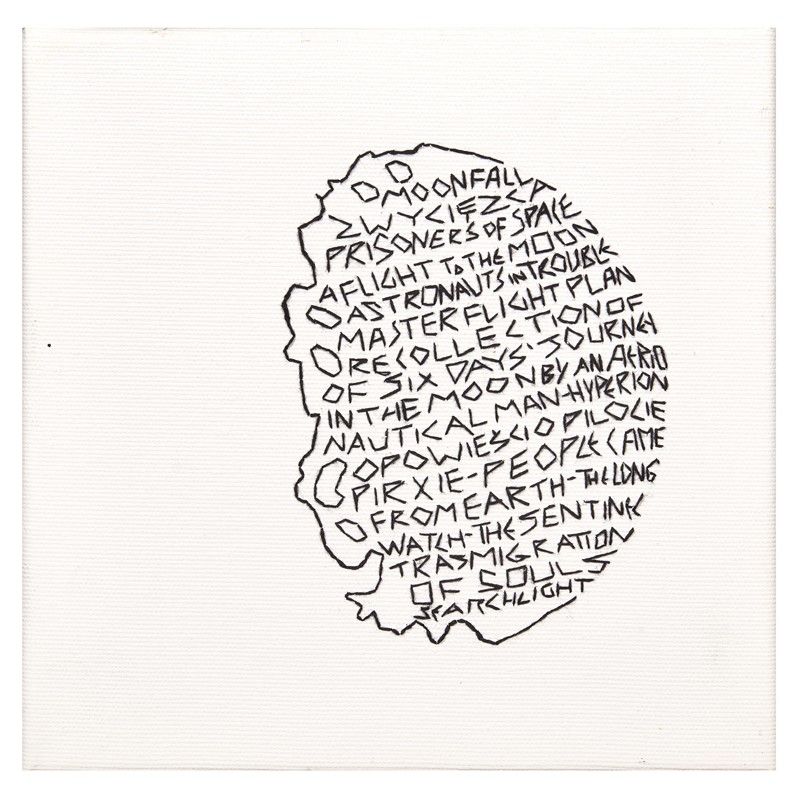 MOONFALL A
ZWYCIĘZCA
PRISONERS OF SPACE
A FLIGHT TO THE MOON
ASTRONAUTS IN TROUBLE
MASTER FLIGHT PLAN
RECOLLECTION OF
OF SIX DAYS' JOURNEY
IN THE MOON BY AN AERIO
NAUTICAL MAN-HYPERION
OPOWIEŚCI O PILOCIE
PIRXIE-PEOPLE CAME
FROM EARTH-THE LONG
WATCH-THE SENTINEL
TRASMIGRATION
OF SOULS
SEARCHLIGHT